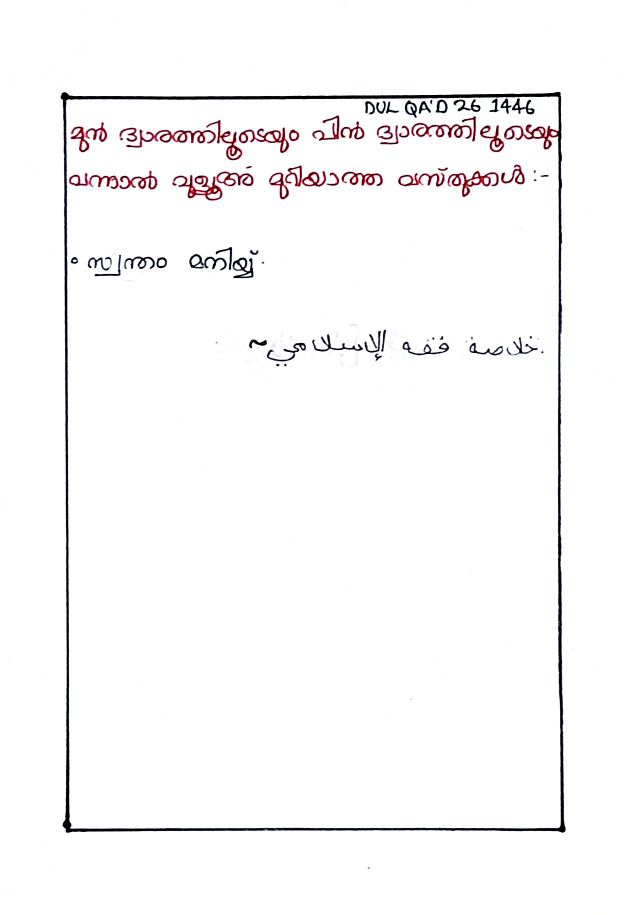 DUL QA'D 26 1446
മുൻ ദ്വാരത്തിലൂടെയും പിൻ ദ്വാരത്തിലൂടെയും
വന്നാൽ വുളൂഅ് മുറിയാത്ത വസ്തുക്കൾ :-
° സ്വന്തം മനിയ്യ്.
خلاصة فقه الإسلامي~.